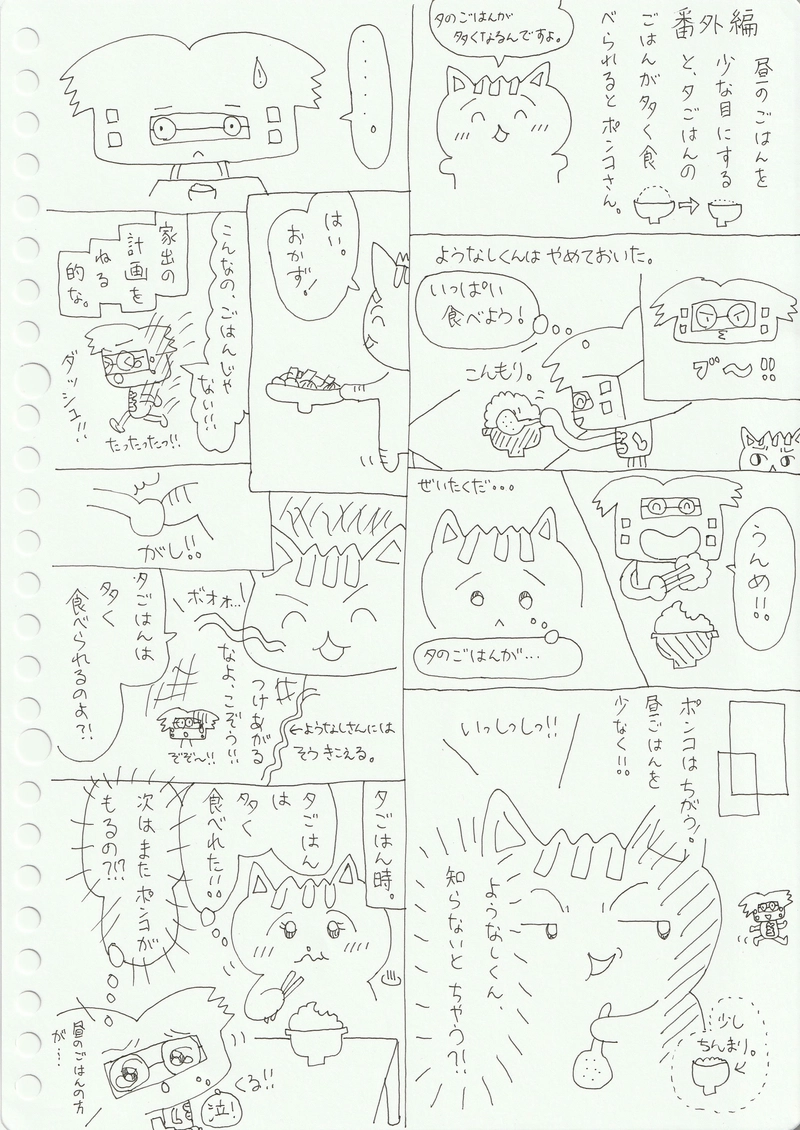 番外編
昼のごはんを
少な目にする
と、夕ごはんの
ごはんが多く食
べられるとポンコさん。
夕のごはんが
多くなるんですよ。
ようなしくんは やめておいた。
グ〜!!
いっぱい
食べよう！
こんもり。
うんめ!!
ぜいたくだ…
夕のごはんが…
ポンコはちがう。
昼ごはんを
少なく!!
いっしっしっ!!
ようなしくん、
知らないと ちゃう?!
少し
ちんまり。
・・・・・。
はい。
おかず！
こんなの、ごはんじゃ
ない!!
家出の
計画を
ねる
的な。
ダッシュ!!
たったたっ!!
がし!!
ボオォ…
つけあがる
なよ、こぞう!!
←ようなしさんには
そうきこえる。
ぞぞ〜!!
夕ごはんは
多く
食べられるのよ?!
夕ごはん時。
夕ごはん
は
多く
食べれた!!
次はまた ポンコが
もるの?!?
昼のごはんの方
が…
くる!!
泣！